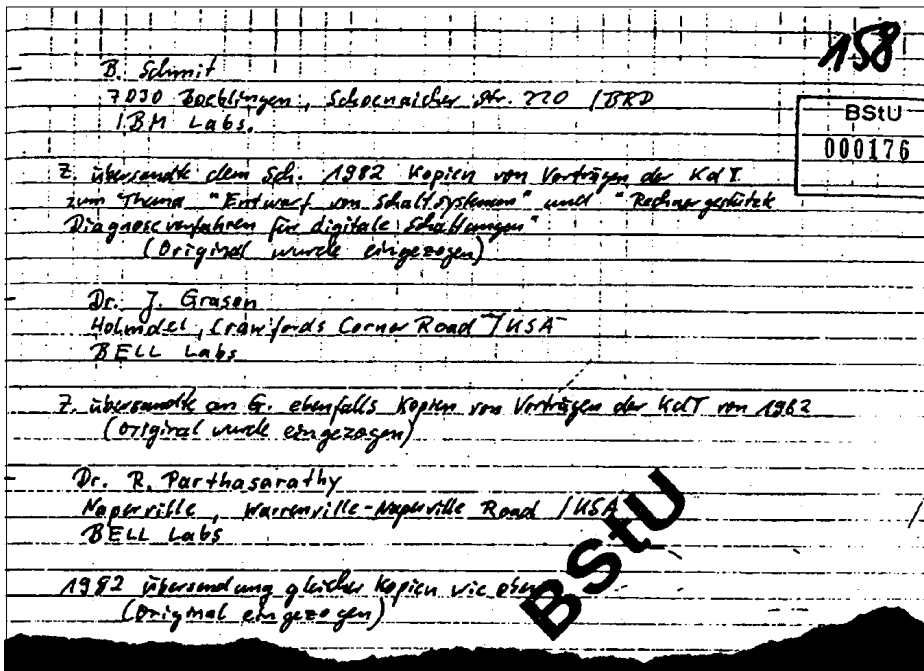 158
BStU
000176
- B. Schmit
7030 Boeblingen, Schoenaicher Str. 220 /BRD
IBM Labs.
Z. übersandte dem Sch. 1982 Kopien von Vorträgen der KdT
zum Thema "Entwurf von Schaltsystemen" und "Rechnergestützte
Diagnoseverfahren für digitale Schaltungen"
(Original wurde eingezogen)
- Dr. J. Grason
Holmdel, Crawfords Corner Road /USA
BELL Labs
Z. übersandte an G. ebenfalls Kopien von Vorträgen der KdT von 1982
(Original wurde eingezogen)
- Dr. R. Parthasarathy
Naperville, Warrenville-Naperville Road /USA
BELL Labs
1982 Übersendung gleicher Kopien wie oben
(Original eingezogen)
BStU